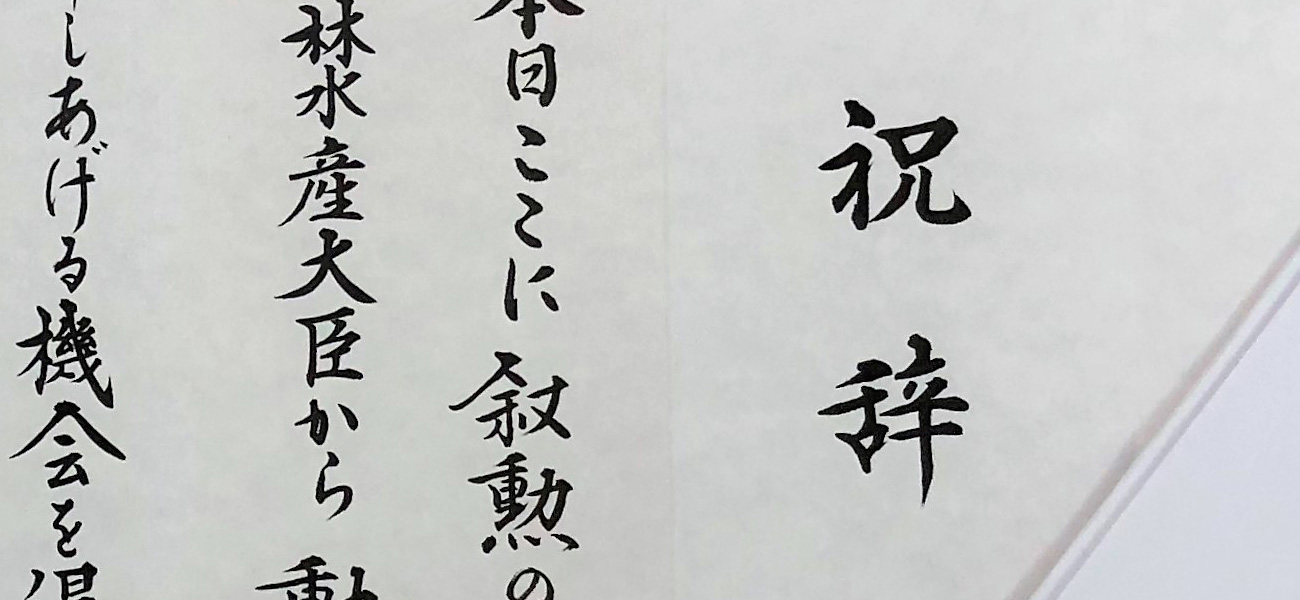 祝辞
本日ここに叙勲の
林水産大臣から
しあげる機会を